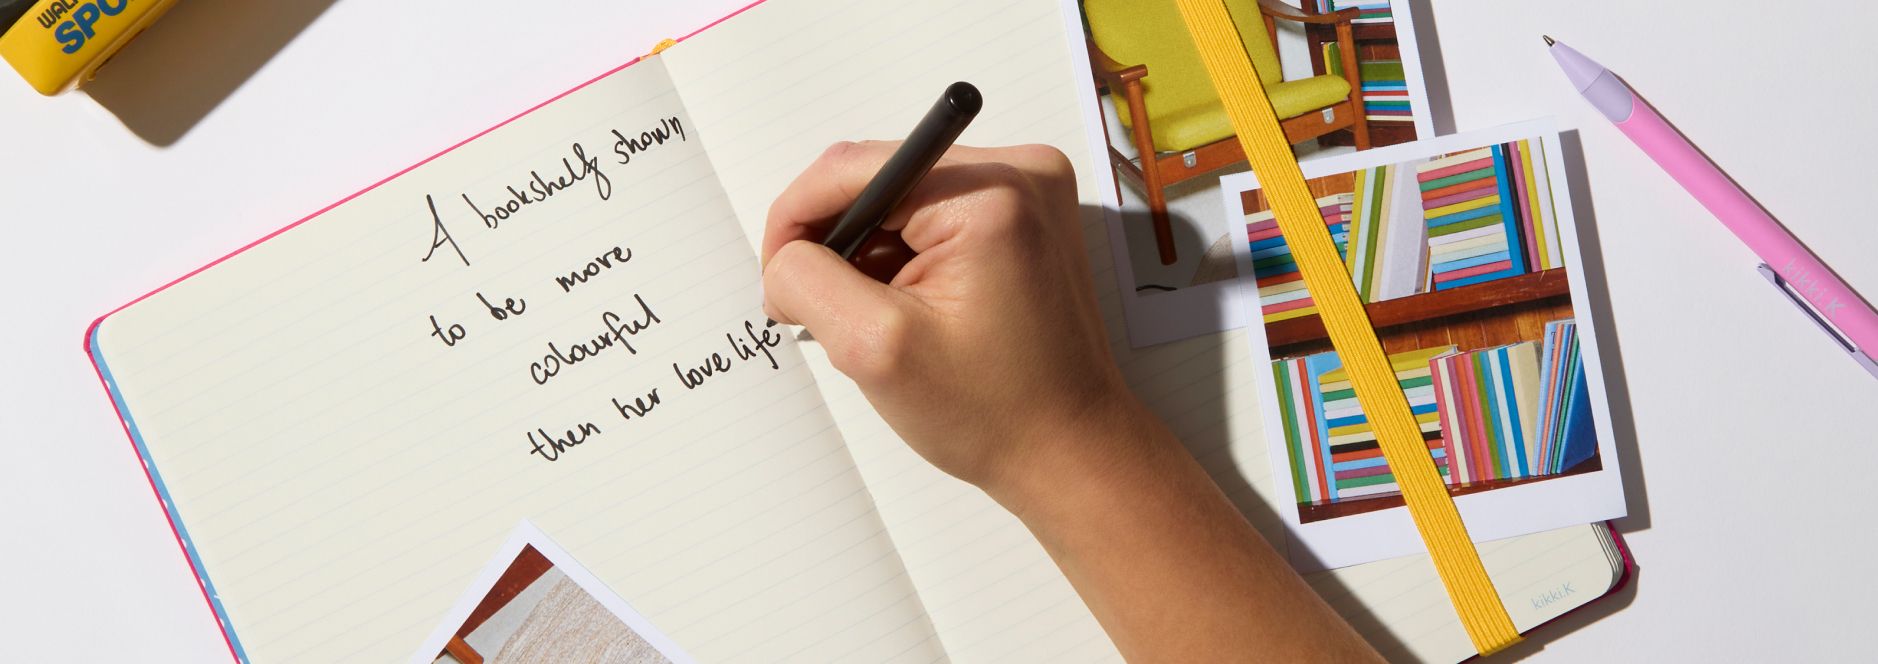 WAL
SPO
A bookshelf shown
to be more
colourful
then her love life
kikki.K
kikki.K